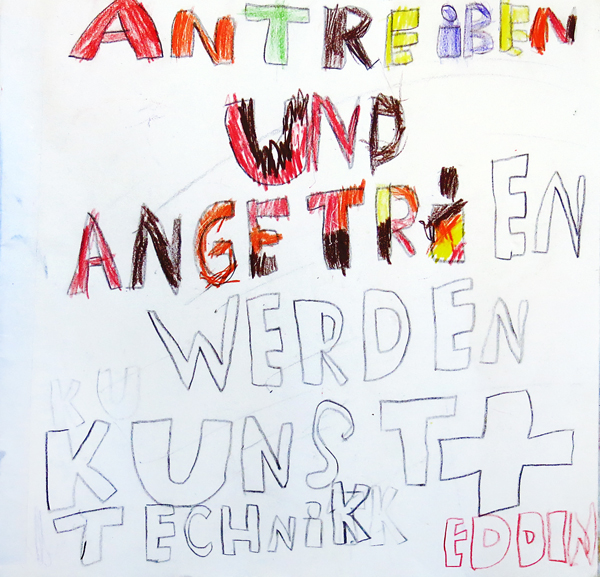 ANTREiBEN
UND
ANGETRiEN
WERDEN
KU
KUNST+
TECHNiK
EDDIN